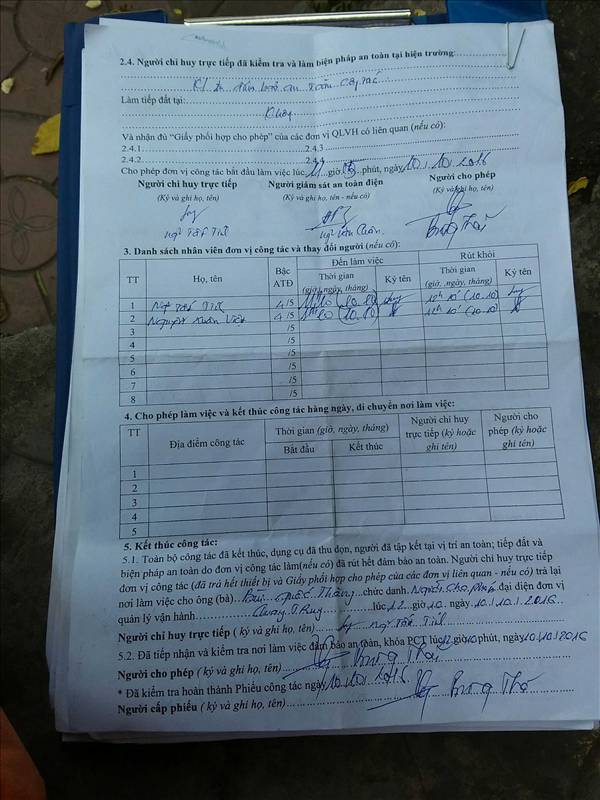 2.4. Người chỉ huy trực tiếp đã kiểm tra và làm biện pháp an toàn tại hiện trường:
đảm bảo an toàn công tác
Làm tiếp đất tại:
Không
Và nhận đủ “Giấy phối hợp cho phép” của các đơn vị QLVH có liên quan (nếu có):
2.4.1 2.4.3
2.4.2 2.4.4
Cho phép đơn vị công tác bắt đầu làm việc lúc 11 giờ phút, ngày 10.10.2016
Người chỉ huy trực tiếp Người giám sát an toàn điện Người cho phép
(Ký và ghi họ, tên) (Ký và ghi họ, tên - nếu có) (Ký và ghi họ, tên)
3. Danh sách nhân viên đơn vị công tác và thay đổi người (nếu có):
TT Họ, tên Bậc ATĐ Đến làm việc Rút khỏi
Thời gian (giờ, ngày, tháng) Ký tên Thời gian (giờ, ngày, tháng) Ký tên
1 4/5 12h 10' (10.10)
2 Nguyễn Xuân 4/5 12h 10' (10.10)
3 /5
4 /5
5 /5
6 /5
7 /5
8 /5
4. Cho phép làm việc và kết thúc công tác hàng ngày, di chuyển nơi làm việc:
TT Địa điểm công tác Thời gian (giờ, ngày, tháng) Người chỉ huy trực tiếp (ký hoặc ghi tên) Người cho phép (ký hoặc ghi tên)
Bắt đầu Kết thúc
1
2
3
4
5
5. Kết thúc công tác:
5.1. Toàn bộ công tác đã kết thúc, dụng cụ đã thu dọn, người đã tập kết tại vị trí an toàn; tiếp đất và
biện pháp an toàn do đơn vị công tác làm(nếu có) đã rút hết đảm bảo an toàn. Người chỉ huy trực tiếp
đơn vị công tác (đã trả hết thiết bị và Giấy phối hợp cho phép của các đơn vị liên quan - nếu có) trả lại
nơi làm việc cho ông (bà) Bùi Quốc Thắng chức danh Người cho phép đại diện đơn vị
quản lý vận hành lúc 12 giờ 10 ngày 10.10.2016
Người chỉ huy trực tiếp ( ký và ghi họ, tên)
5.2. Đã tiếp nhận và kiểm tra nơi làm việc đảm bảo an toàn, khóa PCT lúc 12 giờ 10 phút, ngày 10.10.2016
Người cho phép ( ký và ghi họ, tên)
* Đã kiểm tra hoàn thành Phiếu công tác ngày 10.10.2016
Người cấp phiếu ( ký và ghi họ, tên)